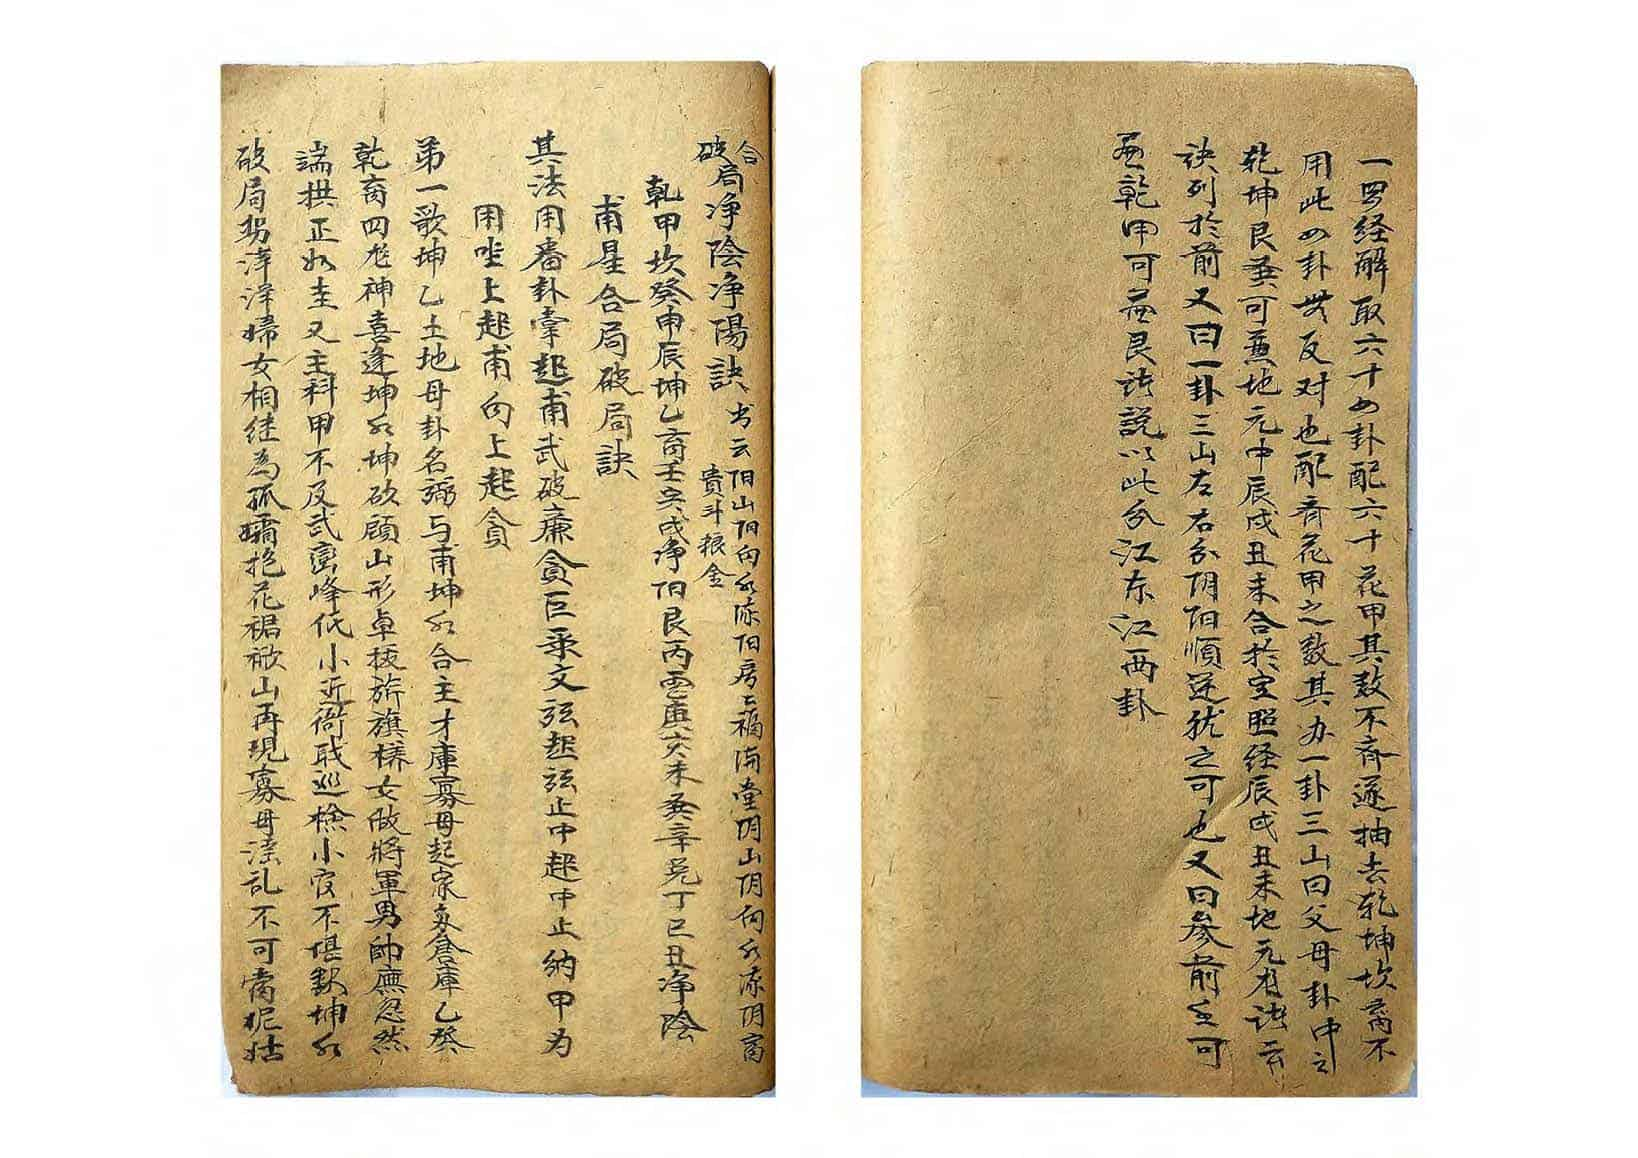 一罗经解取六十四卦配六十花甲其数不齐遂抽去乾坤坎离不
用此四卦無反对也配齐花甲之数其办一卦三山曰父母卦中之
乾坤艮巽可兼地元中辰戌丑未合於宝照经辰戌丑未地元有訣云
诀列於前又曰一卦三山左右分阴阳順逆犹之可也又曰参前至可
巫乾甲可巫艮訣説以此分江东江西卦
合
破局净陰净陽訣 书云阳山阳向水流阳房房福满堂阴山阴向水流阴富
貴斗粮金
乾甲坎癸申辰坤乙离壬寅戌净阳艮丙震庚亥未巽辛兑丁巳丑净陰
甫星合局破局訣
其法用番卦掌起甫武破廉貪巨录文弦起弦止中起中止納甲为
用坐上起甫向上起貪
第一歌坤乙土地母卦名弼与甫坤水合主才庫寡母起家多倉庫乙癸
乾离四尨神喜逢坤水坤砍顾山形卓拔旂旗樣女做將軍男帥廡忽然
端拱正如圭又主科甲不及武峦峰低小近衙戢巡檢小官不堪数坤水
破局拐泽泽婦女相继為孤孀抱花裙褶山再現寡母淫乱不可當尼姑